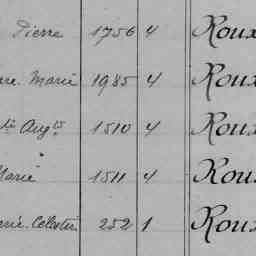 Pierre 1756 4 Roux
Marie 1985 4 Roux
Augte 1510 4 Roux
Marie 1511 4 Roux
Célestin 252 1 Roux